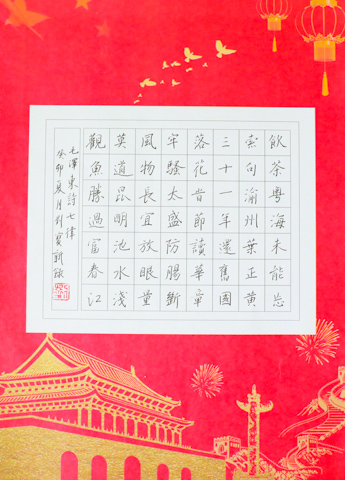 飲茶粵海未能忘
索句渝州葉正黃
三十一年還舊國
落花旹節讀華章
牢騷太盛防腸斷
風物長宜放眼量
莫道昆明池水淺
觀魚勝過富春江
毛澤東詩七律
癸卯夏月 寶新